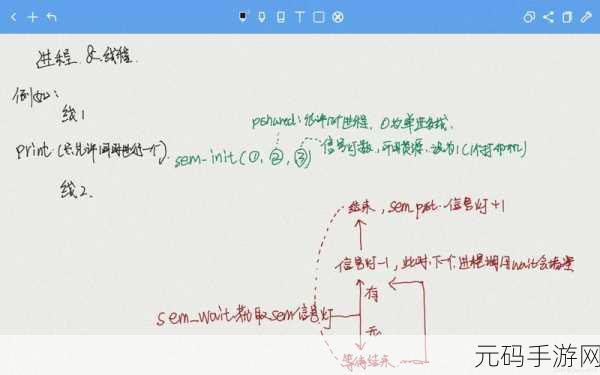 进程 & 线程.
例如:
线1
pshared: 允许几个进程, 0为单进线.
print (只允许同时进行一个).
sem-init(①, ②, ③)
信号灯数, 可用资源, 设为1(1个打印机)
线2.
结束, sem post. 信号灯+1
信号灯-1, 此时, 下个进程调用wait会堵塞
有
sem_wait 获取sem信号灯
无
等待结束
元码手游网